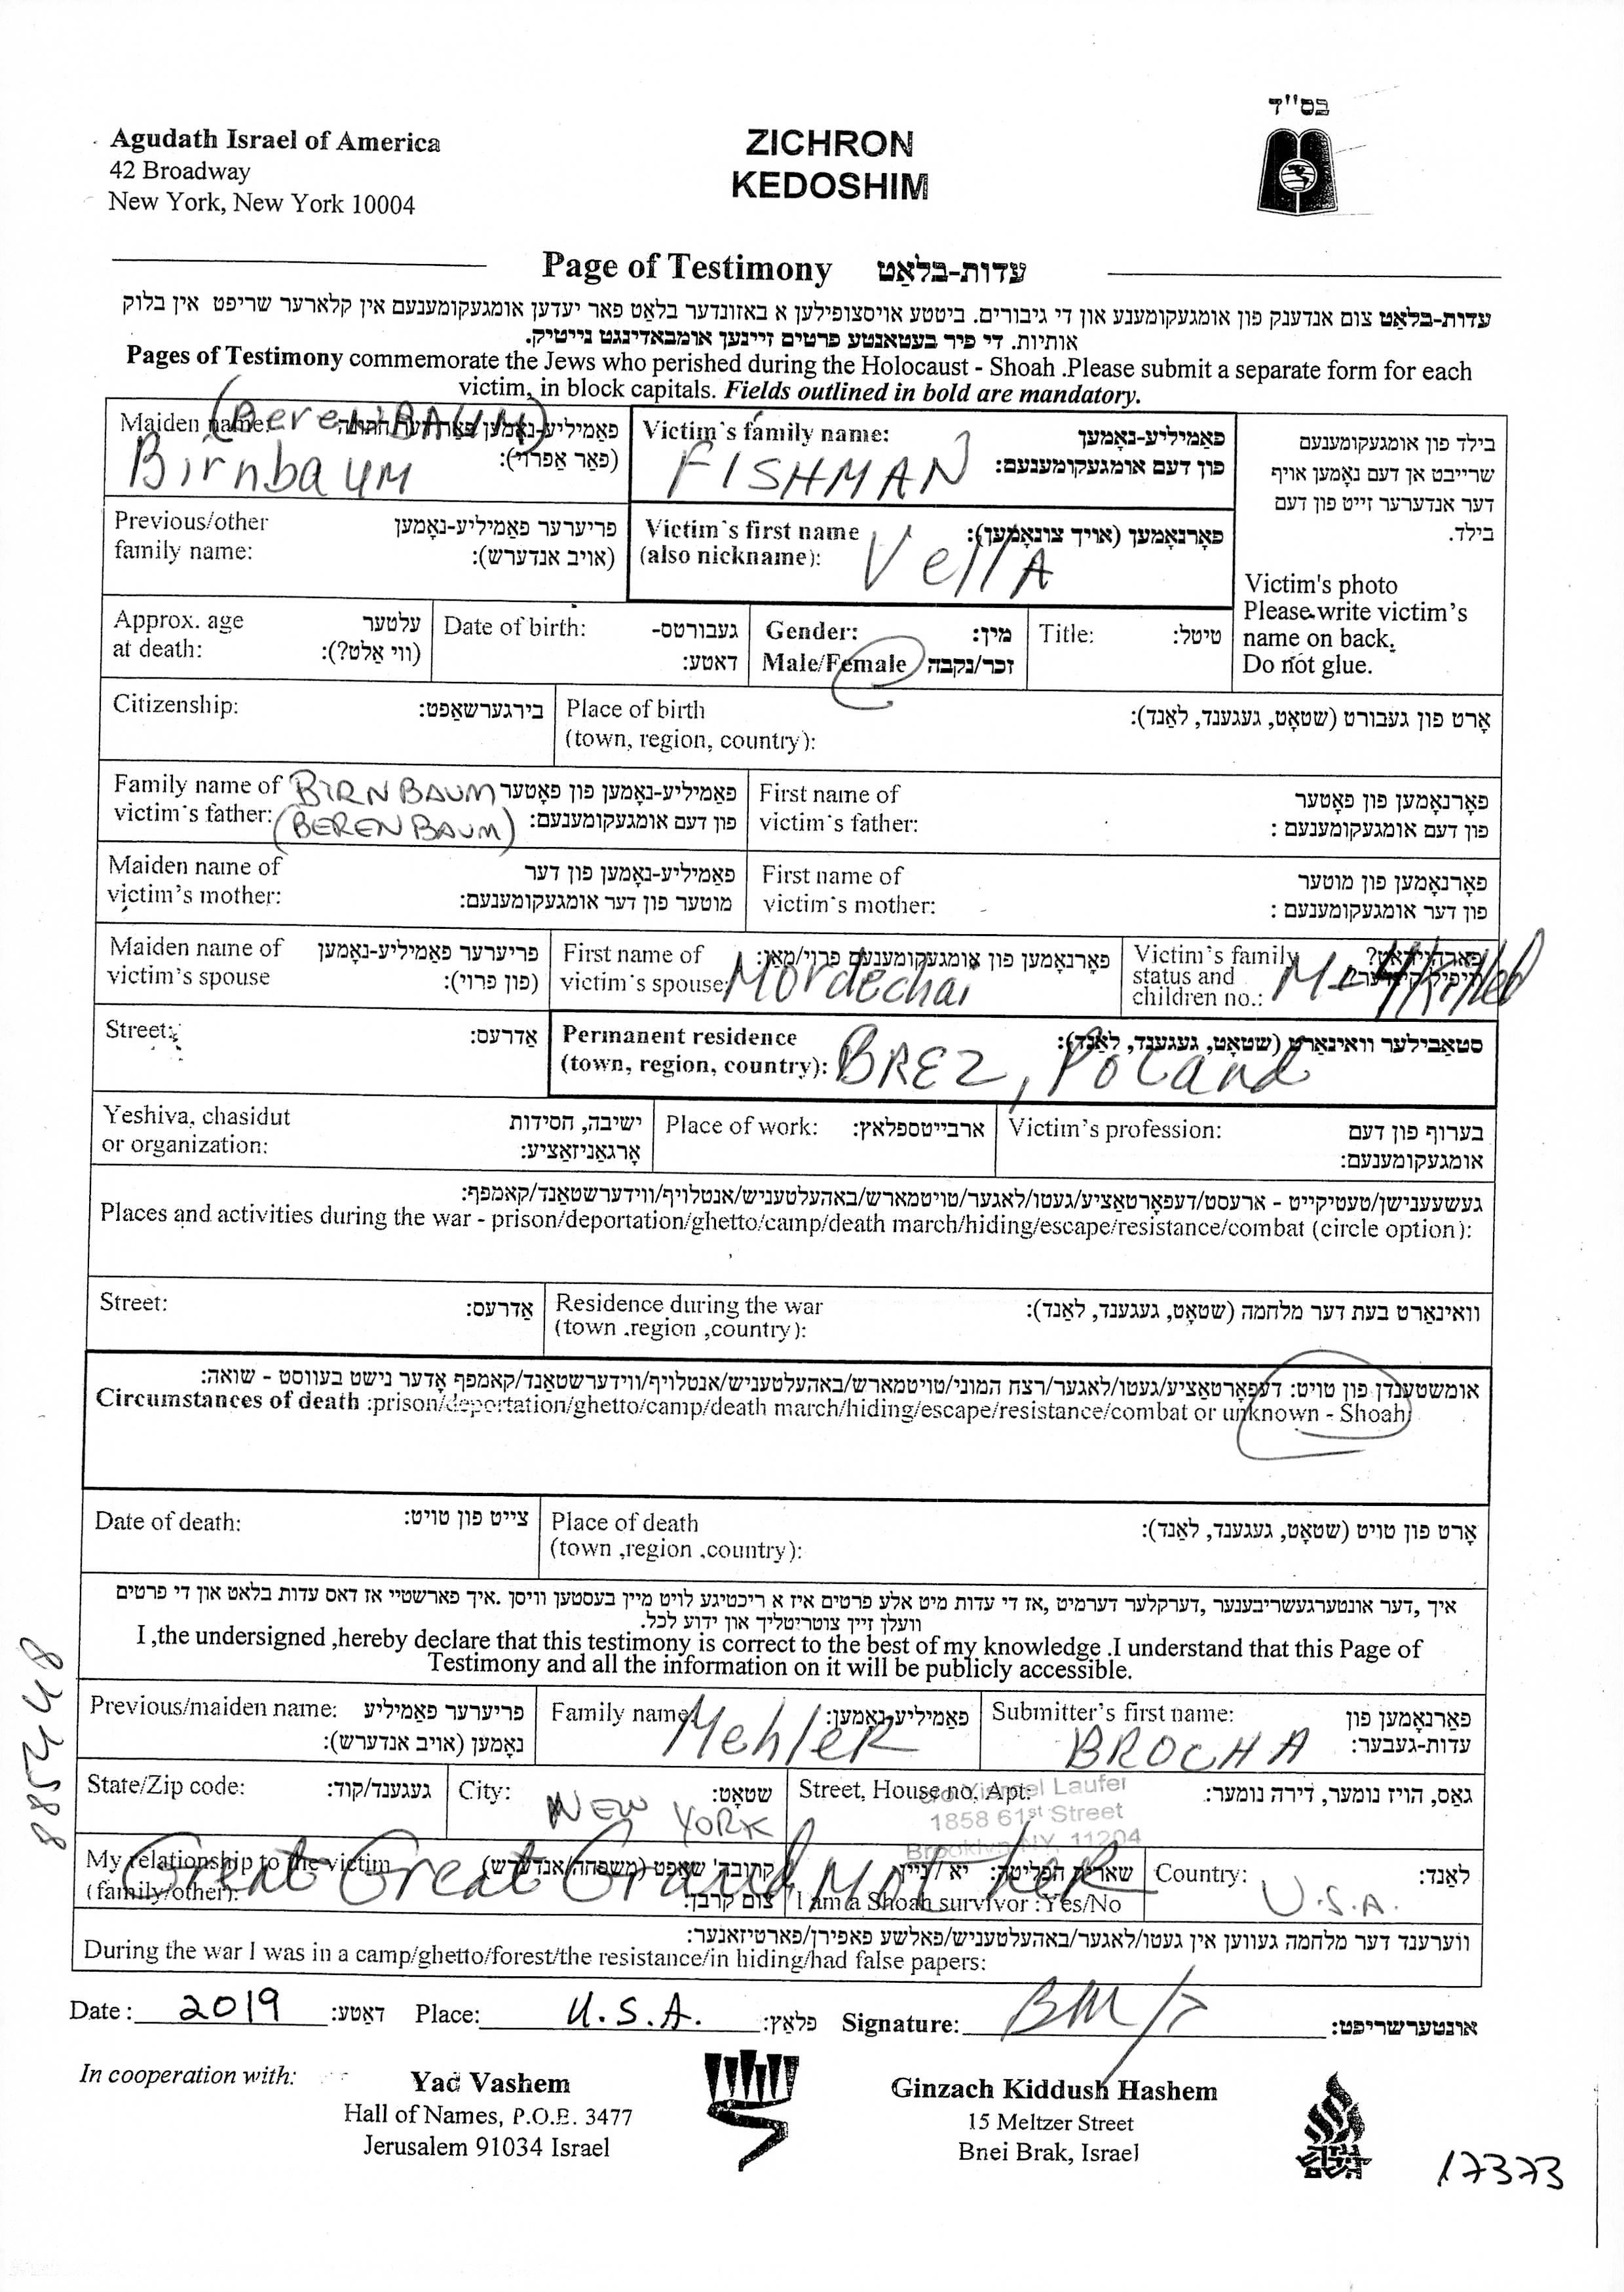 בס"ד
Agudath Israel of America
42 Broadway
New York, New York 10004
ZICHRON
KEDOSHIM
Page of Testimony עדות-בלאַט
עדות-בלאַט צום אנדענק פון אומגעקומענע און די גיבורים. ביטטע אויסצופילען א באזונדער בלאַט פאר יעדען אומגעקומענעם אין קלארער שריפט אין בלוק
אותיות. די פיר בעטאנטע פרטים זיינען אומבאדינגט נייטיק.
Pages of Testimony commemorate the Jews who perished during the Holocaust - Shoah .Please submit a separate form for each
victim, in block capitals. Fields outlined in bold are mandatory.
Maiden name: (BereNBAUM)
(פאַר אַפרוי):
Birnbaum
Victim's family name: פאַמיליע-נאָמען
פון דעם אומגעקומענעם:
FISHMAN
בילד פון אומגעקומענעם
שרייבט אן דעם נאָמען אויף
דער אנדערער זייט פון דעם
בילד.
Victim's photo
Please write victim's
name on back.
Do not glue.
Previous/other פריערער פאַמיליע-נאָמען
family name: (אויב אנדערש):
Victim's first name פאָרנאָמען (אויך צונאָמען):
(also nickname):
VellA
Approx. age עלטער
at death: (ווי אַלט?):
Date of birth: געבורטס-
דאַטע:
Gender: מין:
Male/Female זכר/נקבה
Title: טיטל:
Citizenship: בירגערשאַפט:
Place of birth אָרט פון געבורט (שטאָט, געגענד, לאַנד):
(town, region, country):
Family name of BIRNBAUM פאַמיליע-נאָמען פון פאָטער
victim's father: (BERENBAUM) פון דעם אומגעקומענעם:
First name of פאָרנאָמען פון פאָטער
victim's father: פון דעם אומגעקומענעם :
Maiden name of פאַמיליע-נאָמען פון דער
victim's mother: מוטער פון דער אומגעקומענעם:
First name of פאָרנאָמען פון מוטער
victim's mother: פון דער אומגעקומענעם :
Maiden name of פריערער פאַמיליע-נאָמען
victim's spouse (פון פרוי):
First name of פאָרנאָמען פון אומגעקומענעם פרוי/מאַן:
victim's spouse: Mordechai
Victim's family
status and
children no.: M -
Street: אַדרעס:
Permanent residence סטאַבילער וואוינאָרט (שטאָט, געגענד, לאַנד):
(town, region, country): BREZ, Poland
Yeshiva, chasidut ישיבה, חסידות
or organization: אָרגאַניזאַציע:
Place of work: ארבייטספלאץ:
Victim's profession: בערוף פון דעם
אומגעקומענעם:
געשעענישן/טעטיקייט - ארעסט/דעפאָרטאַציע/געטו/לאגער/טויטמארש/באהעלטעניש/אנטלויף/ווידערשטאַנד/קאמפף:
Places and activities during the war - prison/deportation/ghetto/camp/death march/hiding/escape/resistance/combat (circle option):
Street: אַדרעס:
Residence during the war וואוינאָרט בעת דער מלחמה (שטאָט, געגענד, לאַנד):
(town .region ,country):
אומשטענדן פון טויט: דעפאָרטאַציע/געטו/לאגער/רצח המוני/טויטמארש/באהעלטעניש/אנטלויף/ווידערשטאַנד/קאמפף אָדער נישט בעוווסט - שואה:
Circumstances of death :prison/deportation/ghetto/camp/death march/hiding/escape/resistance/combat or unknown - Shoah
Date of death: צייט פון טויט:
Place of death אָרט פון טויט (שטאָט, געגענד, לאַנד):
(town ,region ,country):
איך ,דער אונטערגעשריבענער ,דערקלער דערמיט ,אז די עדות מיט אלע פרטים איז א ריכטיגע לויט מיין בעסטען וויסן .איך פארשטיי אז דאס עדות בלאט און די פרטים
וועלן זיין צוטריטליך און ידוע לכל.
I ,the undersigned ,hereby declare that this testimony is correct to the best of my knowledge .I understand that this Page of
Testimony and all the information on it will be publicly accessible.
Previous/maiden name: פריערער פאַמיליע
נאָמען (אויב אנדערש):
Family name: פאַמיליע-נאָמען:
Mehler
Submitter's first name: פאָרנאָמען פון
עדות-געבער:
BROCHA
State/Zip code: געגענד/קוד:
City: שטאָט:
NEW YORK
Street, House no, Apt: גאַס, הויז נומער, דירה נומער:
Laufer
1858 61st Street
Brooklyn NY, 11204
My relationship to the victim
(family/other): צום קרבן:
Great Great GrandMother
שארית הפליטה: יא / ניין
I am a Shoah survivor :Yes/No
Country: לאַנד:
U.S.A.
ווערענד דער מלחמה געווען אין געטו/לאגער/באהעלטעניש/פאלשע פאפירן/פארטיזאנער:
During the war I was in a camp/ghetto/forest/the resistance/in hiding/had false papers:
Date : 2019 דאַטע: Place: U.S.A. פלאַץ: Signature: אונטערשריפט:
In cooperation with:
Yad Vashem
Hall of Names, P.O.B. 3477
Jerusalem 91034 Israel
Ginzach Kiddush Hashem
15 Meltzer Street
Bnei Brak, Israel
גנזך
קידוש
השם
17373
885448